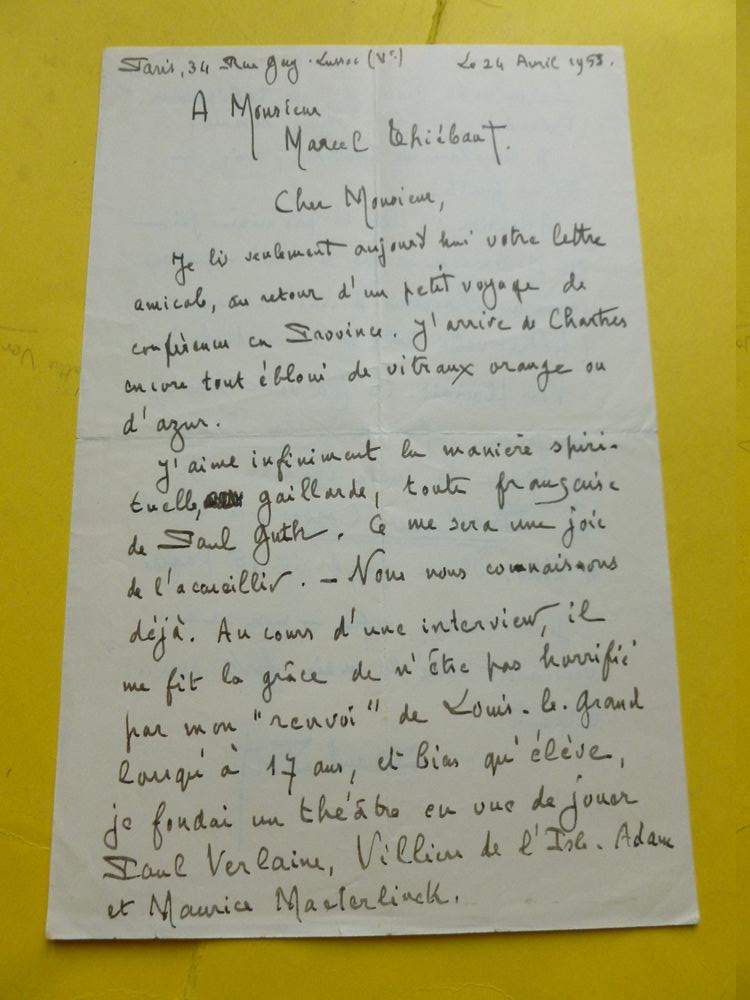 Paris, 34 Rue Gay-Lussac (Ve) Le 24 Avril 1953.
A Monsieur
Marcel Thiébaut.
Cher Monsieur,
Je lis seulement aujourd'hui votre lettre
amicale, au retour d'un petit voyage de
conférences en Province. J'arrive de Chartres
encore tout ébloui de vitraux orange ou
d'azur.
J'aime infiniment la manière spiri-
tuelle, gaillarde, toute française
de Paul Guth. Ce me sera une joie
de l'accueillir. - Nous nous connaissons
déjà. Au cours d'une interview, il
me fit la grâce de n'être pas horrifié
par mon "renvoi" de Louis-le-Grand
lorsqu'à 17 ans, et bien qu'élève,
je fondai un théâtre en vue de jouer
Paul Verlaine, Villiers de l'Isle-Adam
et Maurice Maeterlinck.